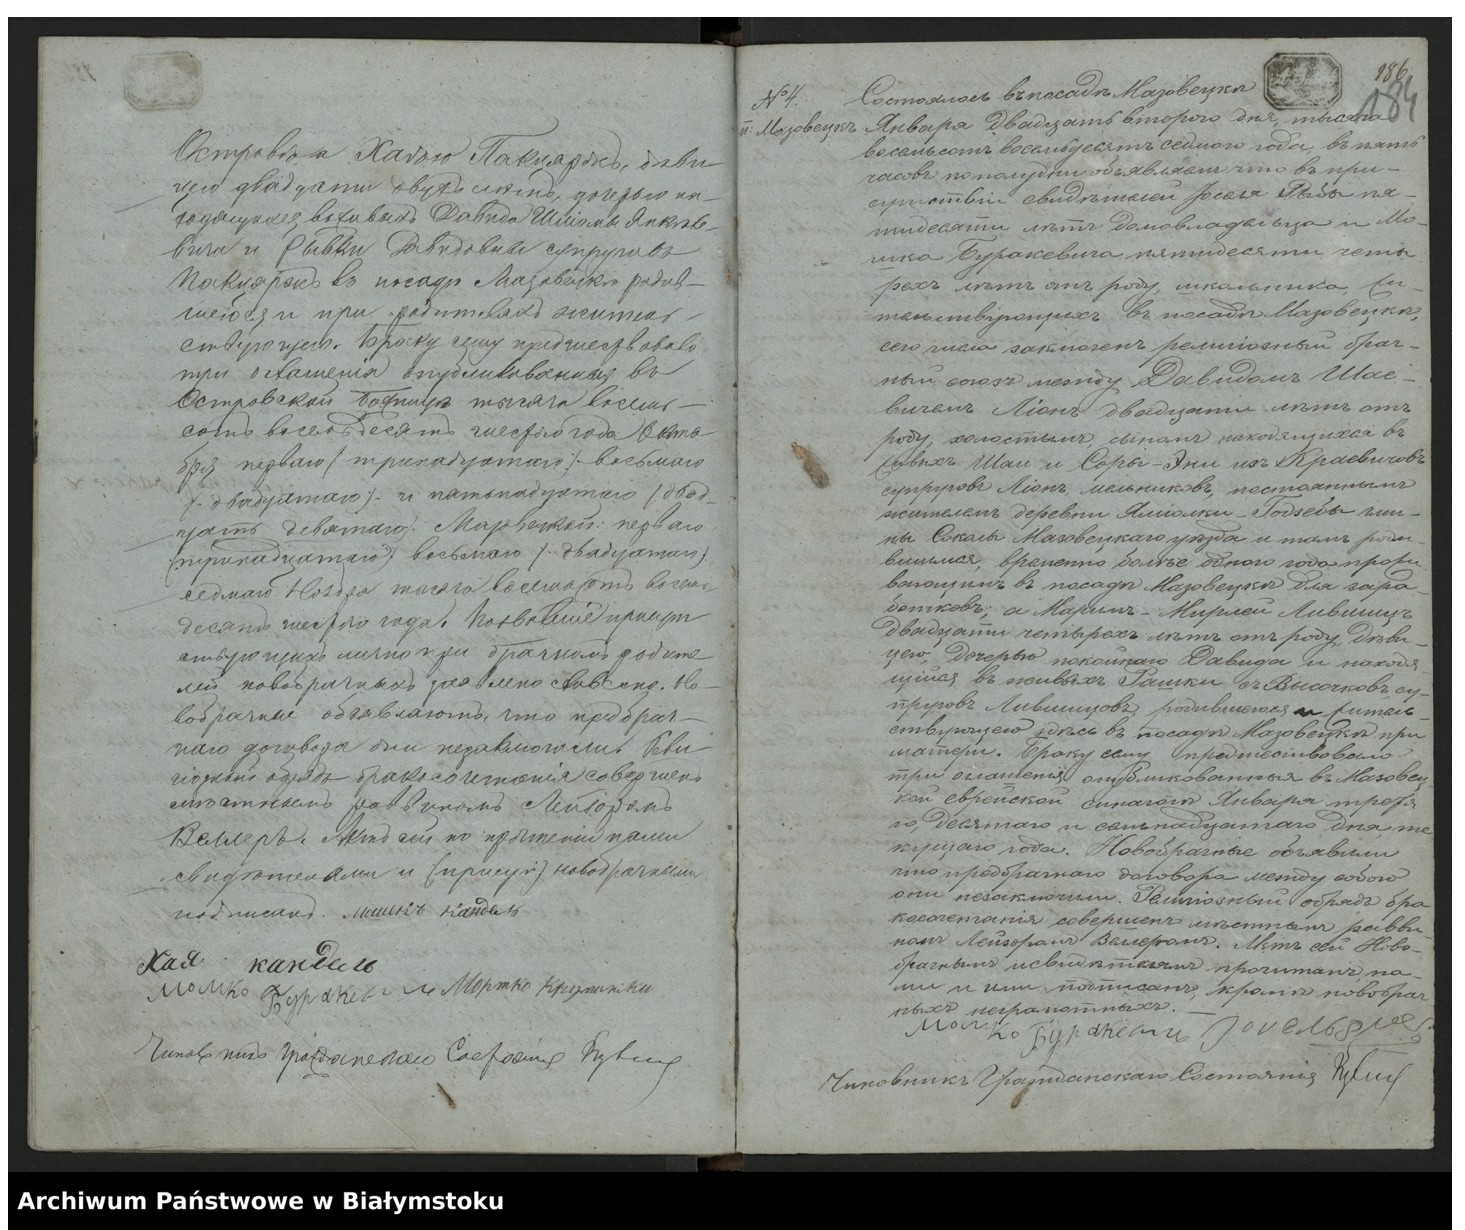 Островѣ и Хаею Пакциржъ, дѣви
цею двадцати двухъ лѣтъ, дочерью на-
ходящихся въ живыхъ Давида Шліомы Янкеле-
вича и Рывки Давидовны супруговъ
Пакциржъ въ посадѣ Мазовецкѣ родив-
шеюся и при родителяхъ жительс-
твующею. Браку сему предшествовало
три оглашенія опубликованныя въ
Островской Божницѣ тысяча восемь-
сотъ восемьдесятъ шестого года Октя-
бря перваго /тринадцатаго/ восьмаго
/двадцатаго/ и пятнадцатаго /двад-
цать девятаго/ Мазовецкой: перваго
/тринадцатаго/ восьмаго /двадцатаго/
Ноября тысяча восемьсотъ восемь
десятъ шестого года. Позволеніе присут
ствующихъ лично при брачномъ родите
лей новобрачныхъ заявлено словесно. Но-
вобрачные объявляютъ, что предбрач-
наго договора они незаключали. Рели
гіозный обрядъ бракосочетанія совершенъ
мѣстнымъ раввиномъ Лейзоромъ
Веллеръ. Актъ сей по прочтеніи нами
свидѣтелями и новобрачными
подписанъ. Мошекъ Кандель
Хая кандель
Мошко Буракевичъ Мортко
Чиновникъ Гражданскаго Состоянія
186
184
№ 4.
п: Мазовецкъ
Состоялось въ посадѣ Мазовецкѣ
Января двадцать второго дня, тысяча
восемьсотъ восемьдесятъ седмого года, въ пять
часовъ по полудни объявляемъ что въ при-
сутствіи свидѣтелей Іоселя Рыбы пя-
тидесяти лѣтъ домовладѣльца и Мо-
шка Буракевича пятидесяти четы
рехъ лѣтъ отъ роду, школьника, жи-
тельствующихъ въ посадѣ Мазовецкѣ,
сего числа заключенъ религіозный брач-
ный союзъ между Давидомъ Шае-
вичемъ Ліонъ двадцати лѣтъ отъ
роду, холостымъ, сыномъ находящихся въ
живыхъ Шаи и Соры-Эни изъ Краевичовъ
супруговъ Ліонъ, мельниковъ, постояннымъ
жителемъ деревни Яміолки-Годзебы гми-
ны Соколы Мазовецкаго уѣзда и тамъ роди
вшимся, временно болѣе одного года прожи
вающимъ въ посадѣ Мазовецкѣ для зара-
ботковъ; а Марьимъ-Мирлей Лившицъ
двадцати четырехъ лѣтъ отъ роду, дѣви
цею, дочерью покойнаго Давида и находя
щейся въ живыхъ Рашки съ Высоцковъ су-
пруговъ Лившицовъ, родившеюся и жител-
ствующею здѣсь въ посадѣ Мазовецкѣ при
матери. Браку сему предшествовало
три оглашенія опубликованныя въ Мазовец
кой еврейской синагогѣ Января третья
го, десятаго и семьнадцатаго дня те
кущаго года. Новобрачные объявили
что предбрачнаго договора между собою
они незаключили. Религіозный обрядъ бра
косочетанія совершенъ мѣстнымъ равви-
номъ Лейзоромъ Веллеромъ. Актъ сей Ново-
брачнымъ и свидѣтелямъ прочитанъ на-
ми и ими подписанъ, кромѣ новобрач
ныхъ неграмотныхъ.
Мошко Буракевичъ
Чиновникъ Гражданскаго Состоянія
Archiwum Państwowe w Białymstoku